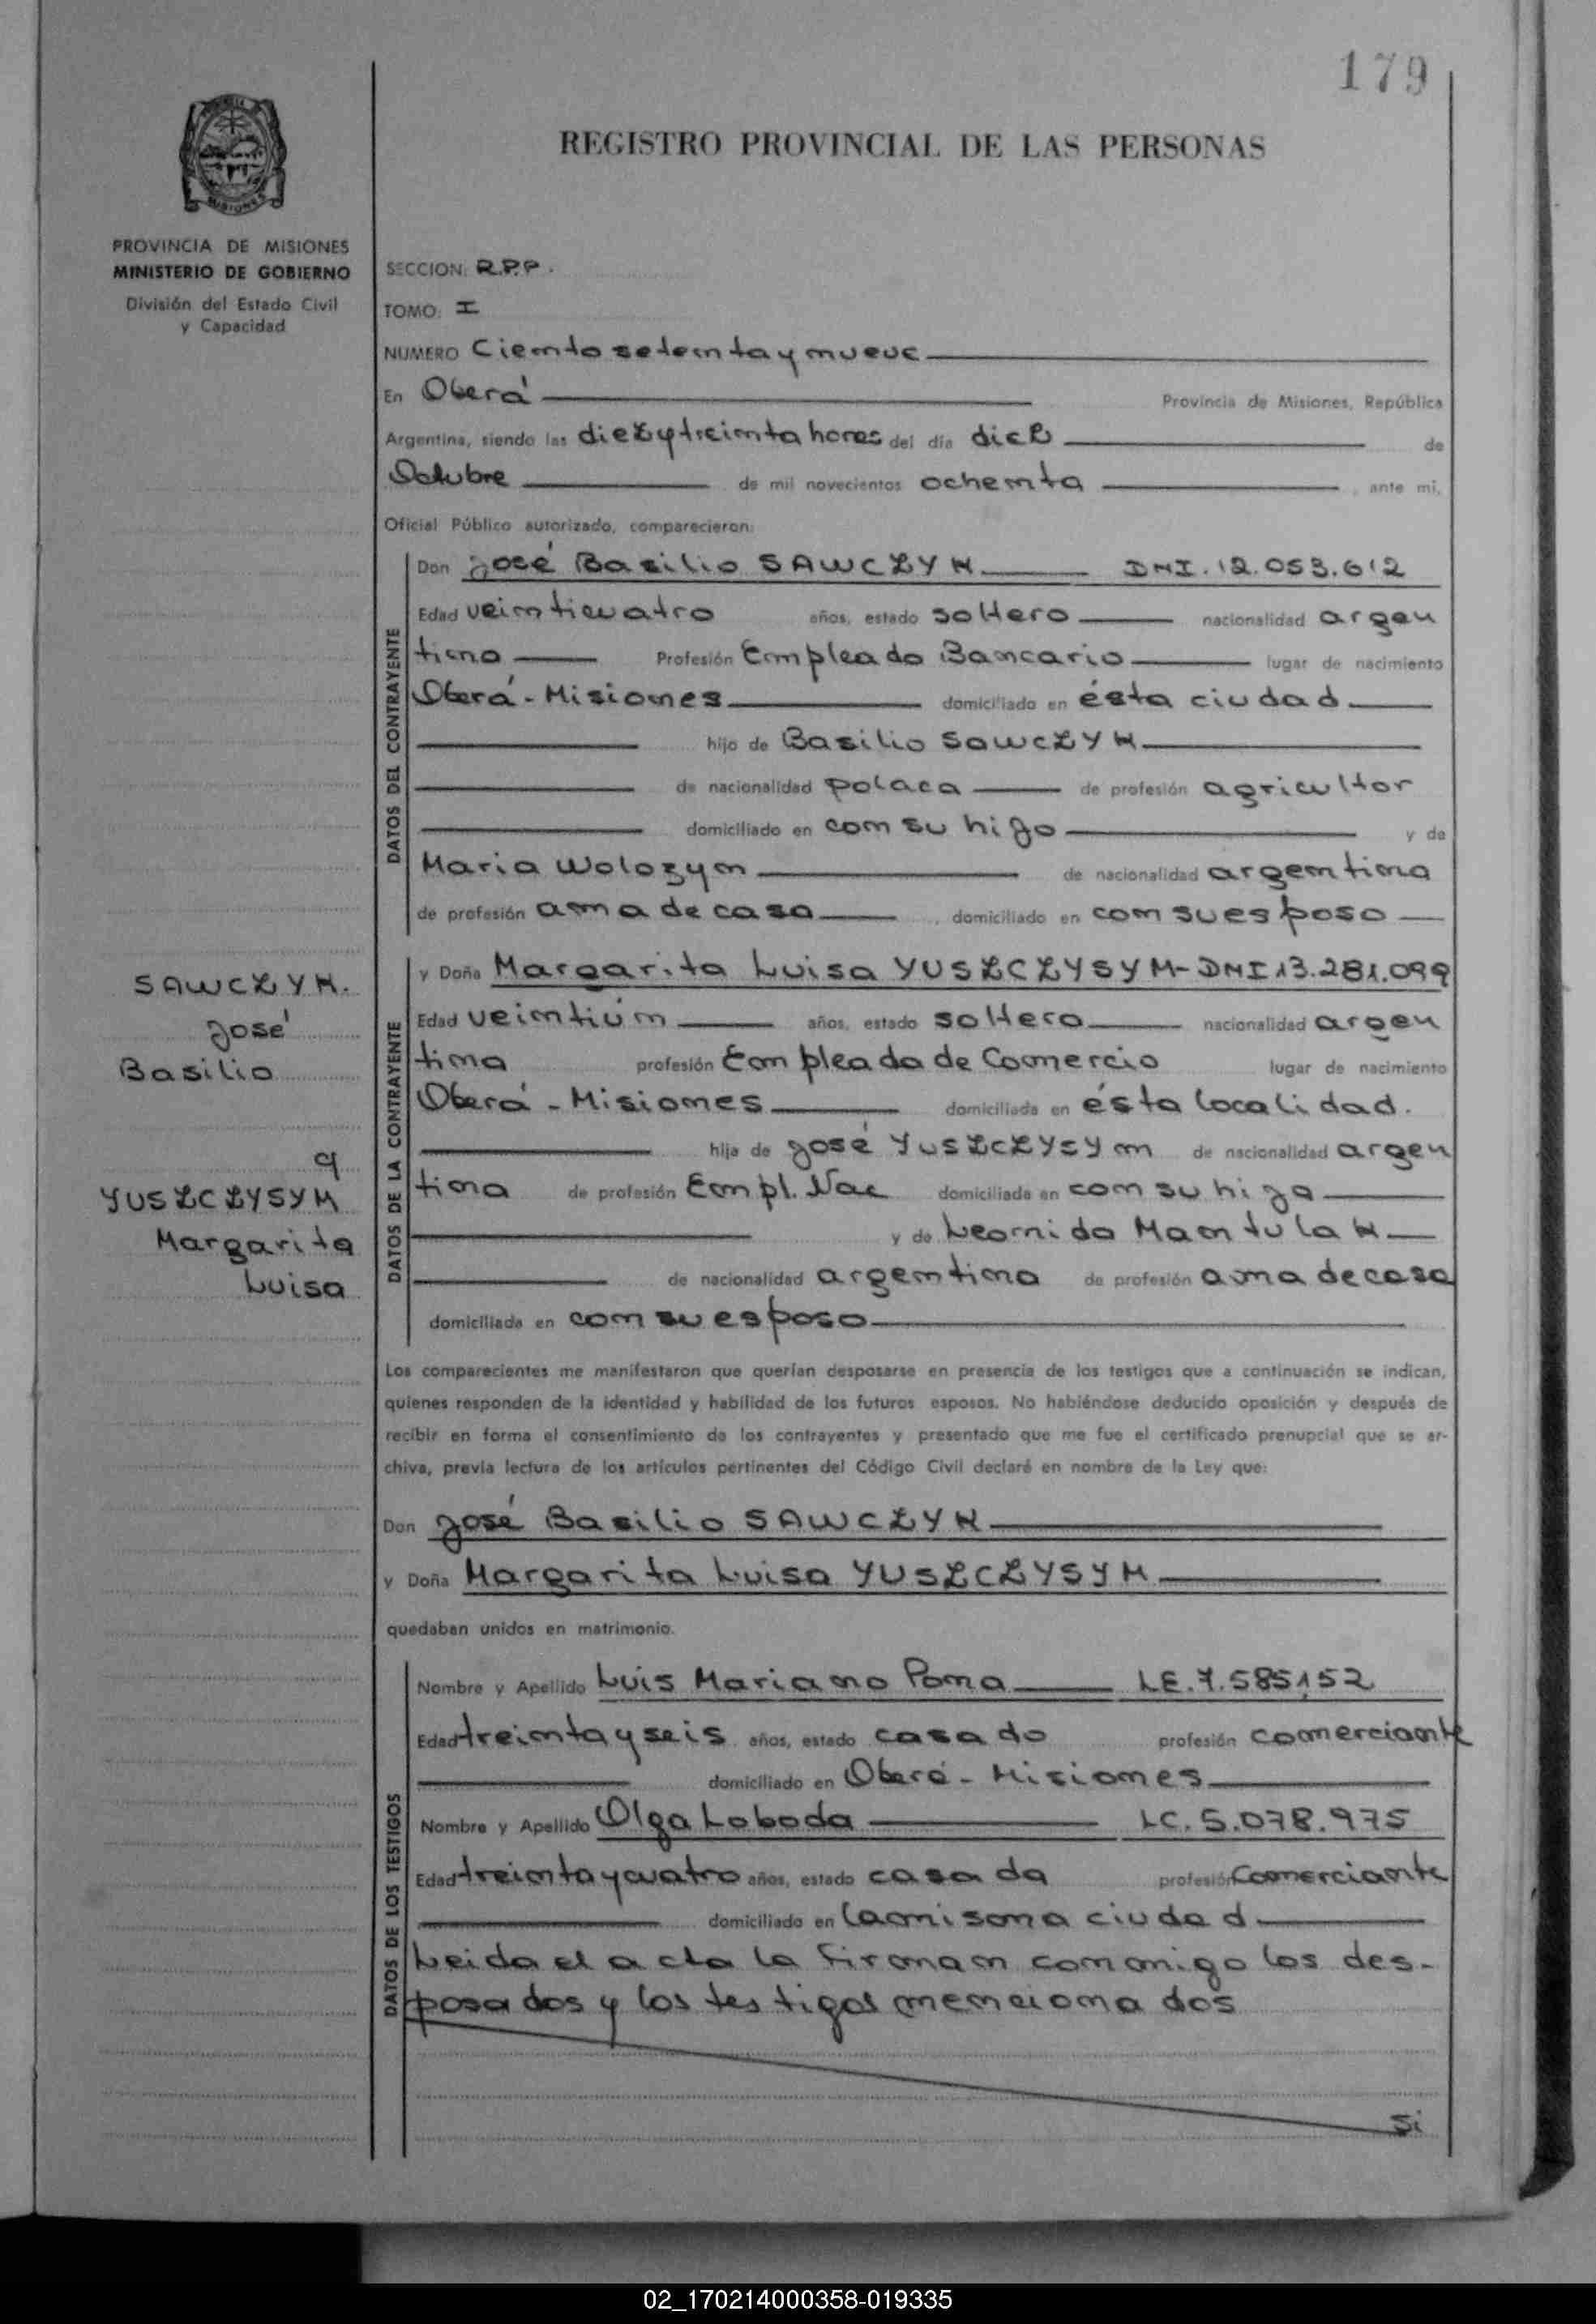 179
REGISTRO PROVINCIAL DE LAS PERSONAS
MISIONES
PROVINCIA DE MISIONES
MINISTERIO DE GOBIERNO
División del Estado Civil
y Capacidad
SECCION: R.P.P.
TOMO: I
NUMERO Ciento setenta y nueve
En Oberá Provincia de Misiones, República
Argentina, siendo las diez y treinta horas del día diez de
Octubre de mil novecientos ochenta, ante mí,
Oficial Público autorizado, comparecieron:
DATOS DEL CONTRAYENTE
Don José Basilio SAWCZYN DNI.12.053.612
Edad veinticuatro años, estado soltero nacionalidad argen
tina Profesión Empleado Bancario lugar de nacimiento
Oberá - Misiones domiciliado en ésta ciudad
hijo de Basilio SAWCZYN
de nacionalidad polaca de profesión agricultor
domiciliado en con su hijo y de
Maria Wolozyn de nacionalidad argentina
de profesión ama de casa, domiciliado en con su esposo
SAWCZYN.
José
Basilio
y
YUSZCZYSYN
Margarita
Luisa
DATOS DE LA CONTRAYENTE
y Doña Margarita Luisa YUSZCZYSYN - DNI 13.281.099
Edad veintiún años, estado soltera nacionalidad argen
tina profesión Empleada de Comercio lugar de nacimiento
Oberá - Misiones domiciliada en ésta localidad.
hija de José YUSZCZYSYN de nacionalidad argen
tina de profesión Empl. Nac domiciliado en con su hija
y de Leonida Mantulak
de nacionalidad argentina de profesión ama de casa
domiciliada en con su esposo
Los comparecientes me manifestaron que querían desposarse en presencia de los testigos que a continuación se indican,
quienes responden de la identidad y habilidad de los futuros esposos. No habiéndose deducido oposición y después de
recibir en forma el consentimiento de los contrayentes y presentado que me fue el certificado prenupcial que se ar-
chiva, previa lectura de los artículos pertinentes del Código Civil declaré en nombre de la Ley que:
Don José Basilio SAWCZYN
y Doña Margarita Luisa YUSZCZYSYN
quedaban unidos en matrimonio.
DATOS DE LOS TESTIGOS
Nombre y Apellido Luis Mariano Poma LE.7.585152
Edad treinta y seis años, estado casado profesión comerciante
domiciliado en Oberá - Misiones
Nombre y Apellido Olga Loboda LC.5.078.975
Edad treinta y cuatro años, estado casada profesión Comerciante
domiciliado en la misma ciudad
Leida el acta la firman conmigo los des-
posados y los testigos mencionados
Si
02_170214000358-019335